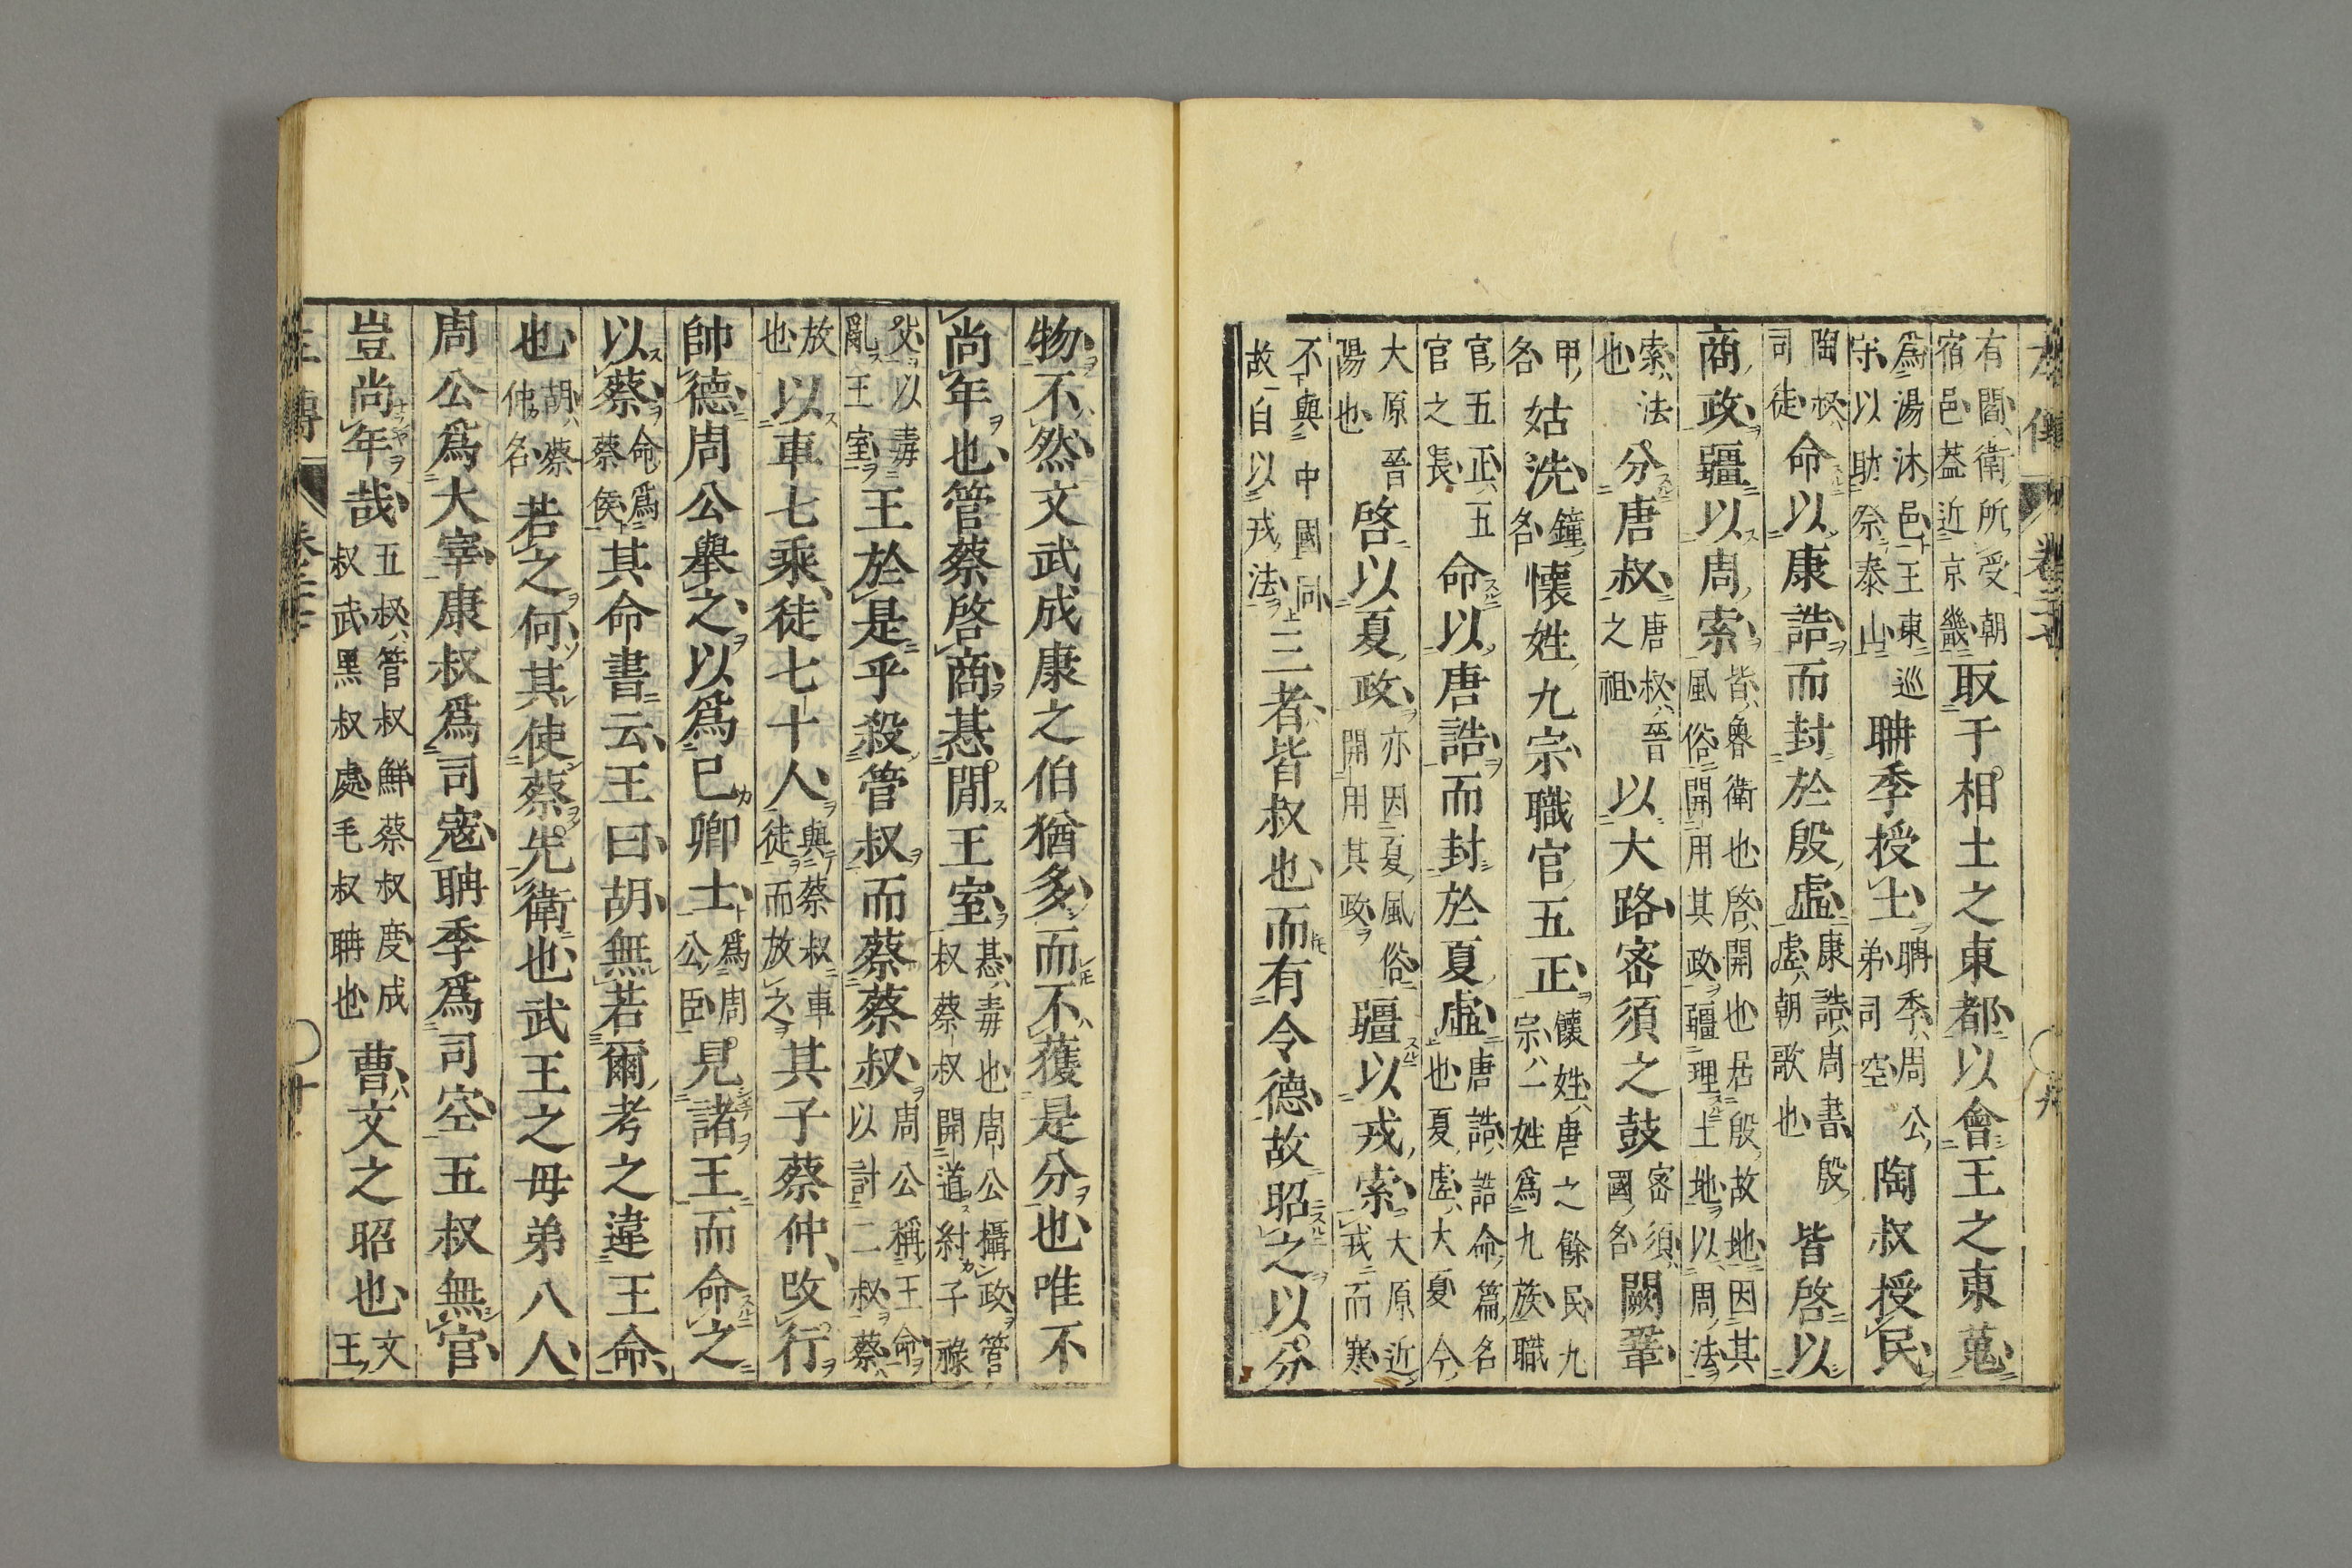 有閻衛所受朝宿邑蓋近京畿取于相土之東都以會王之東蒐
爲湯沐邑王東巡守以助祭泰山聃季授土聃季周公弟司空陶叔授民
陶叔司徒命以康誥而封於殷虛康誥周書殷虛朝歌也皆啓以
商政疆以周索皆魯衛也啓開也居殷故地因其風俗開用其政疆理土地以周法
索法也分唐叔唐叔晉之祖以大路密須之鼓密須國名闕鞏
甲名姑洗鐘名懷姓九宗職官五正懷姓唐之餘民九宗一姓爲九族職
官五正五官之長命以唐誥而封於夏虛唐誥誥命篇名也夏虛大夏今
大原晉陽也啓以夏政亦因夏風俗開用其政疆以戎索大原近戎而寒
不與中國同故自以戎法三者皆叔也而有令德故昭之以分
物不然文武成康之伯猶多而不獲是分也唯不
尚年也管蔡啓商惎閒王室惎毒也周公攝政管叔蔡叔開道紂子祿
父以毒亂王室王於是乎殺管叔而蔡蔡叔周公稱王命以討二叔蔡
放也以車七乘徒七十人與蔡叔車徒而放之其子蔡仲改行
帥德周公舉之以爲己卿士爲周公臣見諸王而命之
以蔡命爲蔡侯其命書云王曰胡無若爾考之違王命
也胡蔡仲名若之何其使蔡先衛也武王之母弟八人
周公爲大宰康叔爲司寇聃季爲司空五叔無官
豈尚年哉五叔管叔鮮蔡叔度成叔武黑叔處毛叔聃也曹文之昭也文王